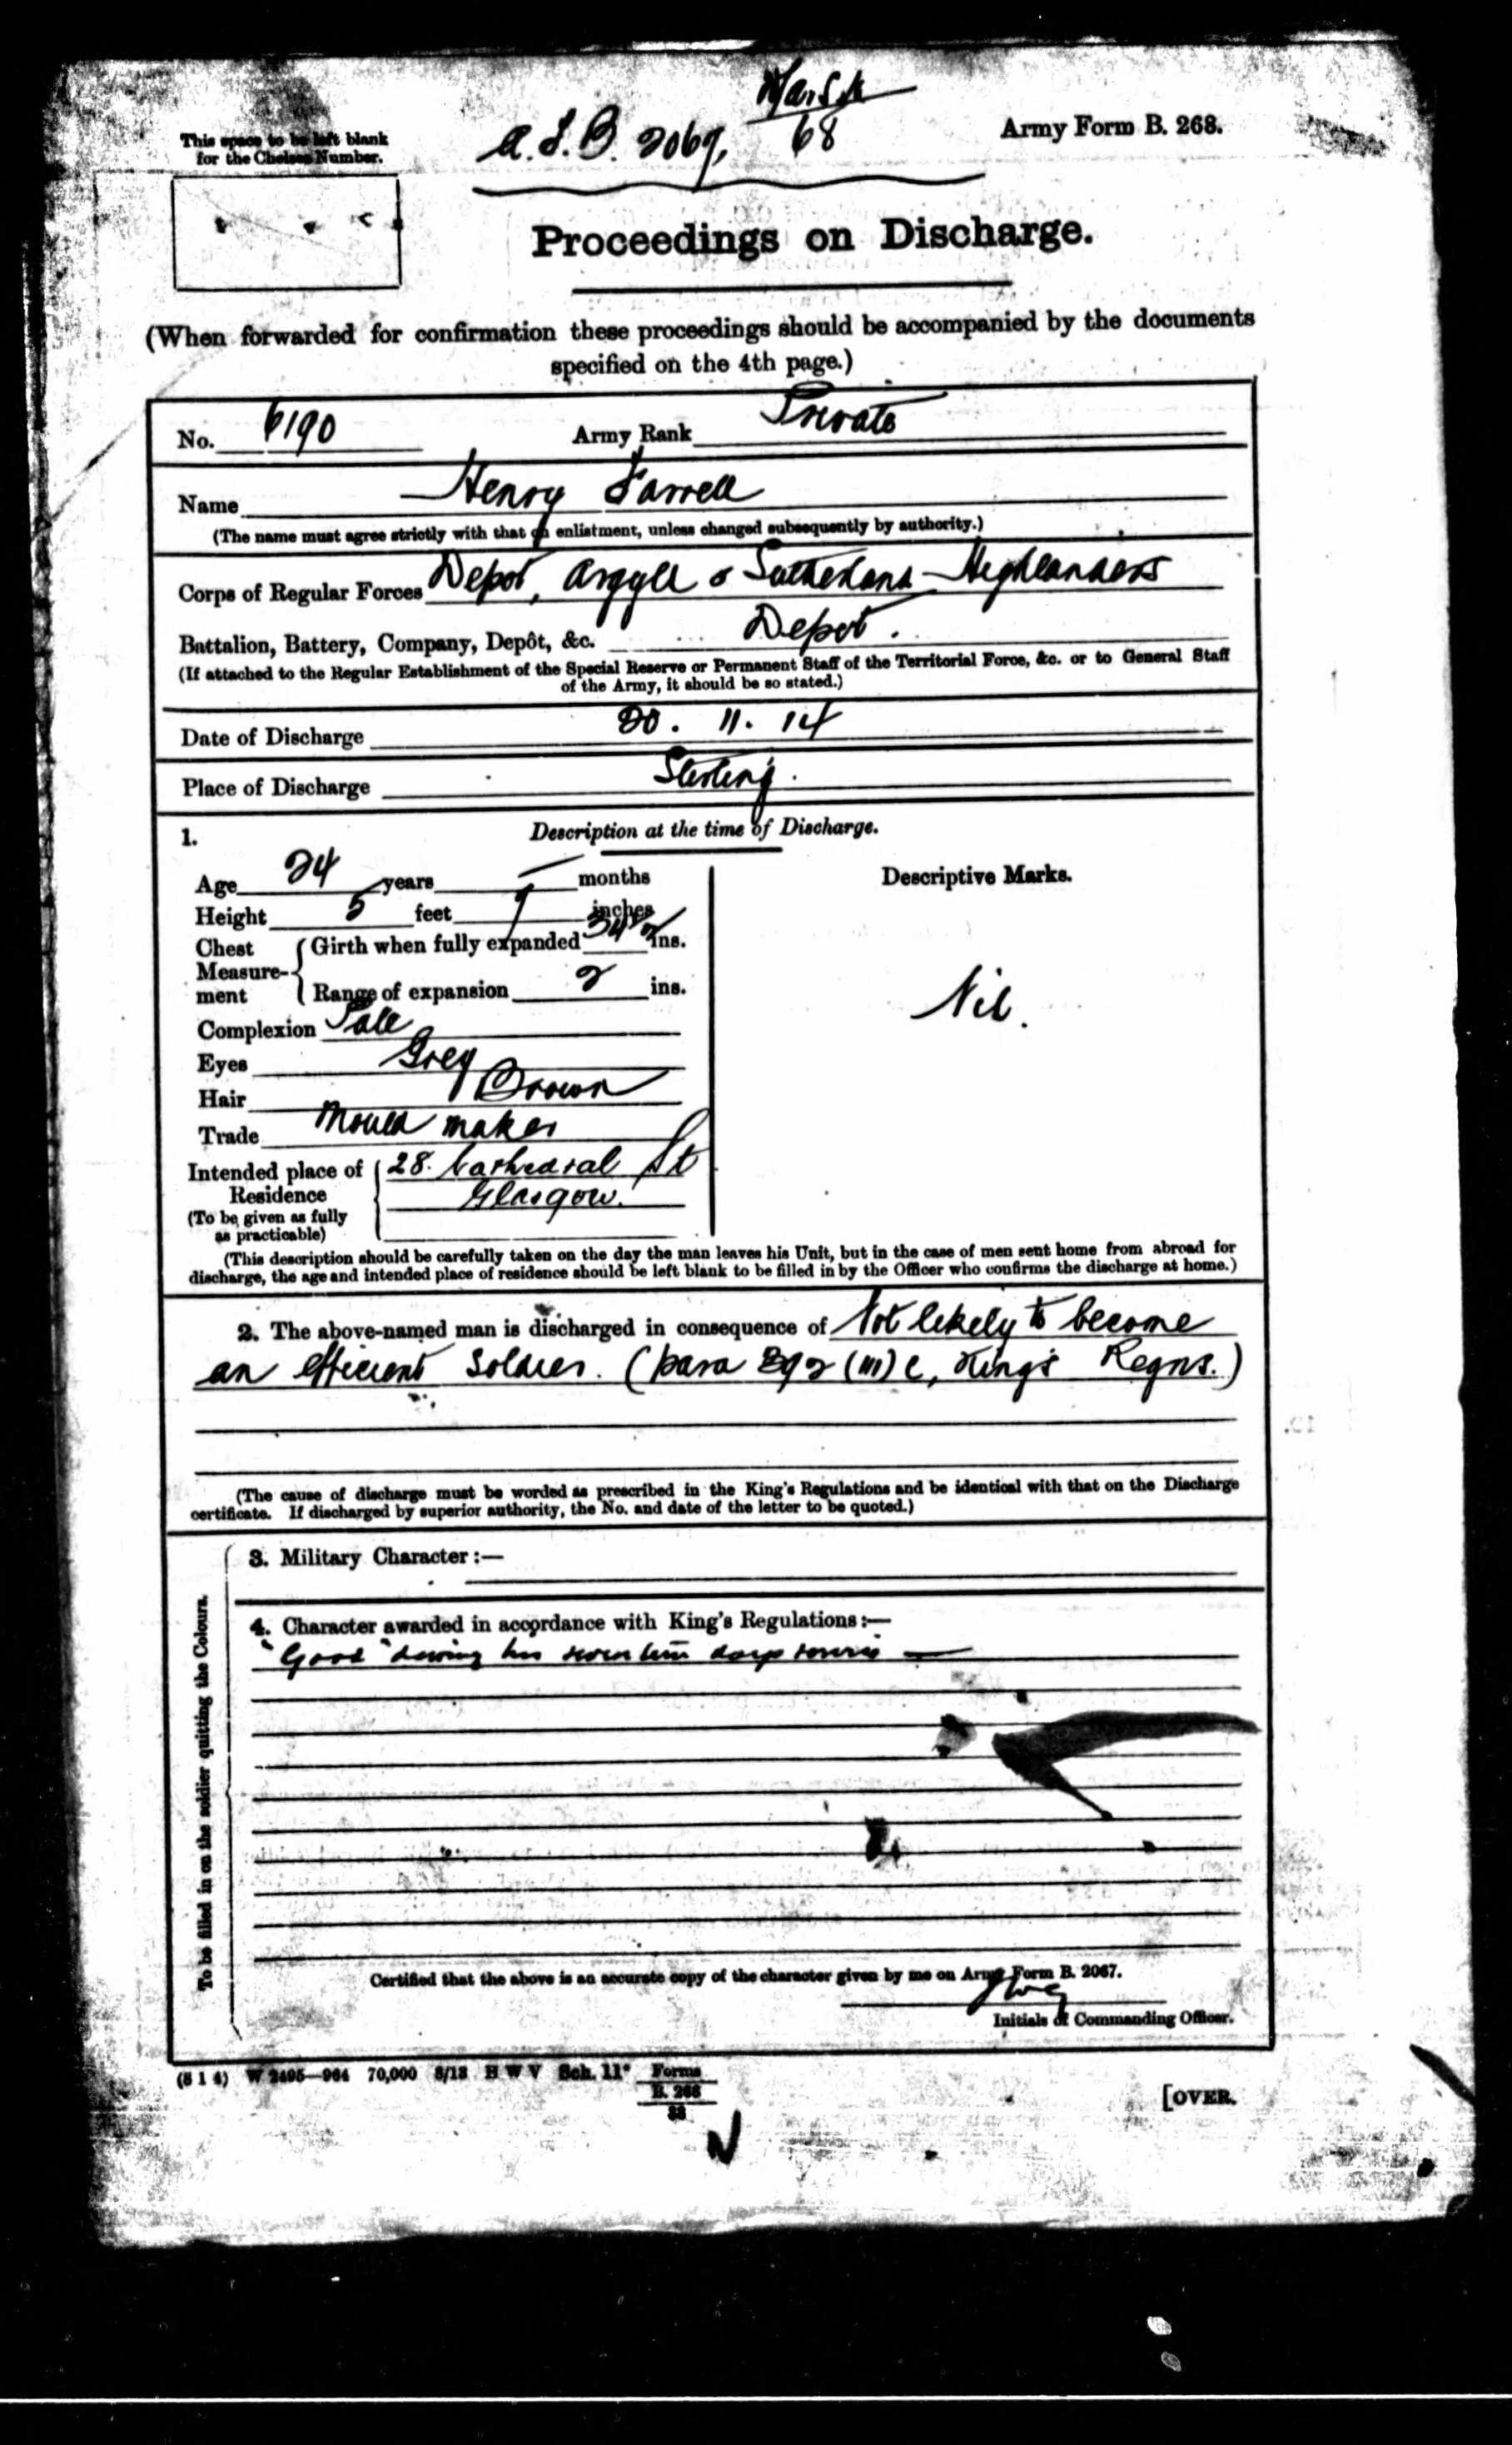 This space to be left blank
for the Chelsea Number.
68
Army Form B. 268.
Proceedings on Discharge.
(When forwarded for confirmation these proceedings should be accompanied by the documents
specified on the 4th page.)
No. 6190 Army Rank Private
Name Henry Farrell
(The name must agree strictly with that on enlistment, unless changed subsequently by authority.)
Corps of Regular Forces Depot, Argyll & Sutherland Highlanders
Battalion, Battery, Company, Depôt, &c. Depot.
(If attached to the Regular Establishment of the Special Reserve or Permanent Staff of the Territorial Force, &c. or to General Staff
of the Army, it should be so stated.)
Date of Discharge 20. 11. 14
Place of Discharge Stirling.
1. Description at the time of Discharge.
Age 24 years — months
Height 5 feet inches
Chest Measurement
Girth when fully expanded ins.
Range of expansion 2 ins.
Complexion Pale
Eyes Grey
Hair Brown
Trade Mould maker
Intended place of Residence
(To be given as fully as practicable)
28. Cathedral St
Glasgow.
Descriptive Marks.
Nil.
(This description should be carefully taken on the day the man leaves his Unit, but in the case of men sent home from abroad for
discharge, the age and intended place of residence should be left blank to be filled in by the Officer who confirms the discharge at home.)
2. The above-named man is discharged in consequence of Not likely to become
an efficient Soldier. (para 392 (III) c, King's Regns.)
(The cause of discharge must be worded as prescribed in the King's Regulations and be identical with that on the Discharge
certificate. If discharged by superior authority, the No. and date of the letter to be quoted.)
To be filled in on the soldier quitting the Colours.
3. Military Character :—
4. Character awarded in accordance with King's Regulations :—
"Good" during his days service —
Certified that the above is an accurate copy of the character given by me on Army Form B. 2067.
Initials of Commanding Officer.
(8 1 4) W 2495—964 70,000 8/13 H W V Sch. 11 Forms
B. 268
[OVER.